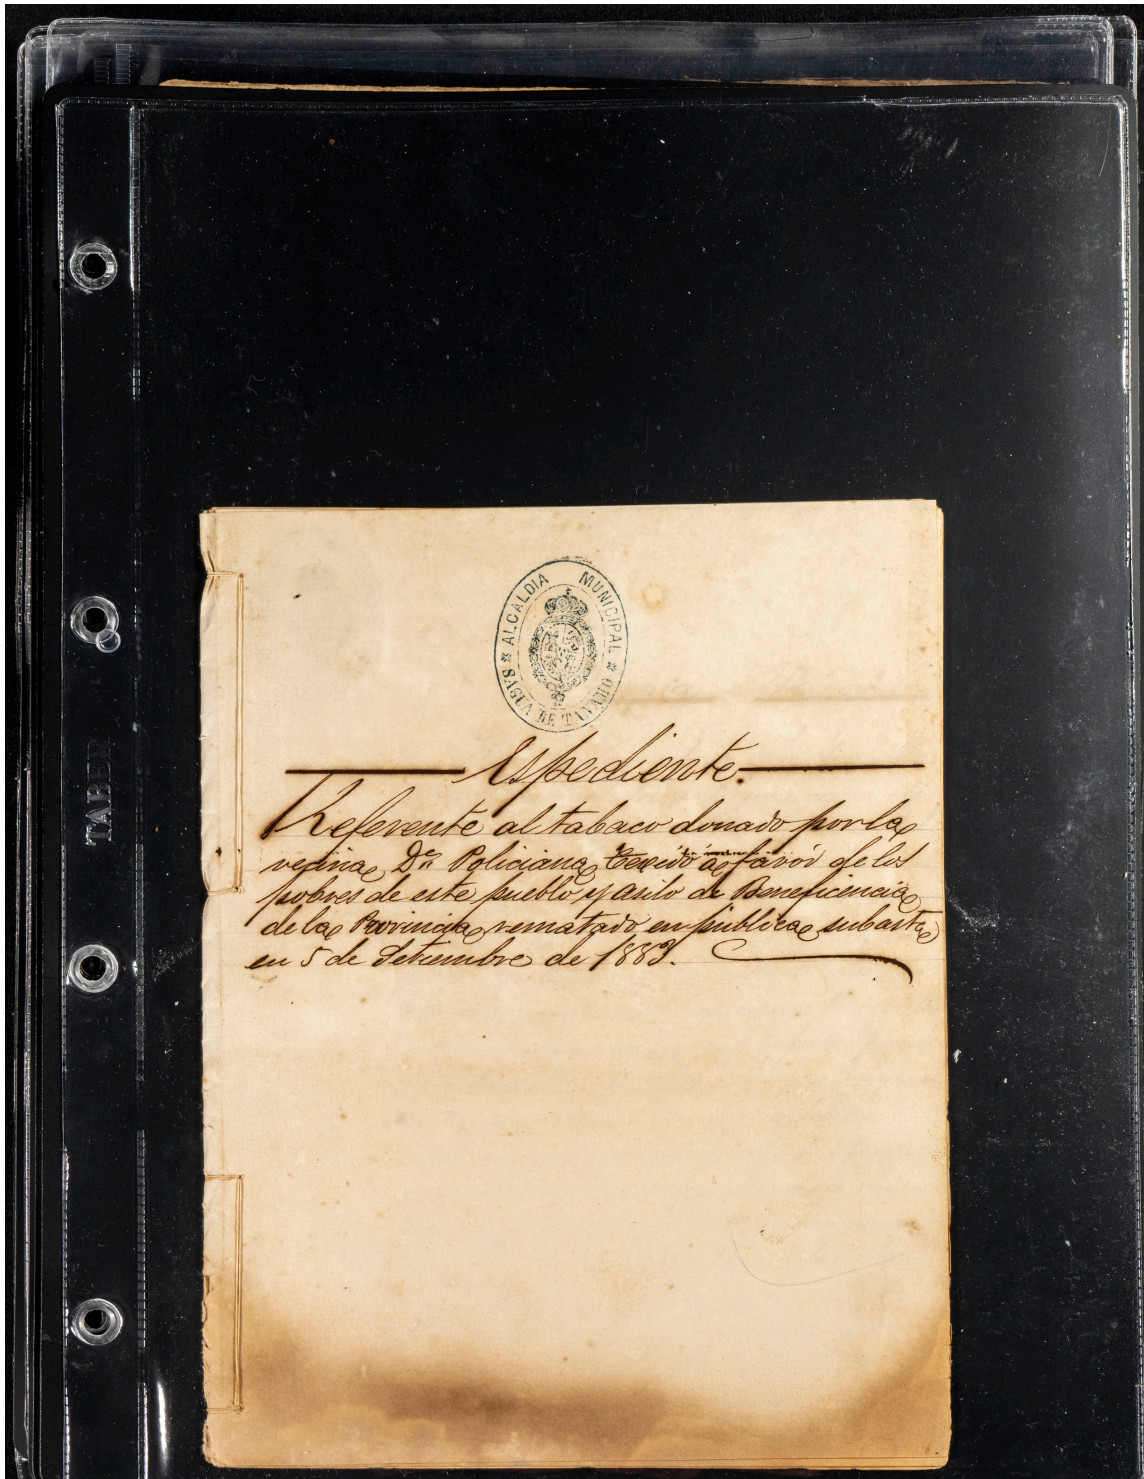 ALCALDIA MUNICIPAL
SAGUA DE TANAMO
Espediente.
Referente al tabaco donado por la
vecina Dª Policiana Texidó á favor de los
pobres de este pueblo y asilo de Beneficencia
de la Provincia rematado en pública subasta
en 5 de Setiembre de 1883.
TABER